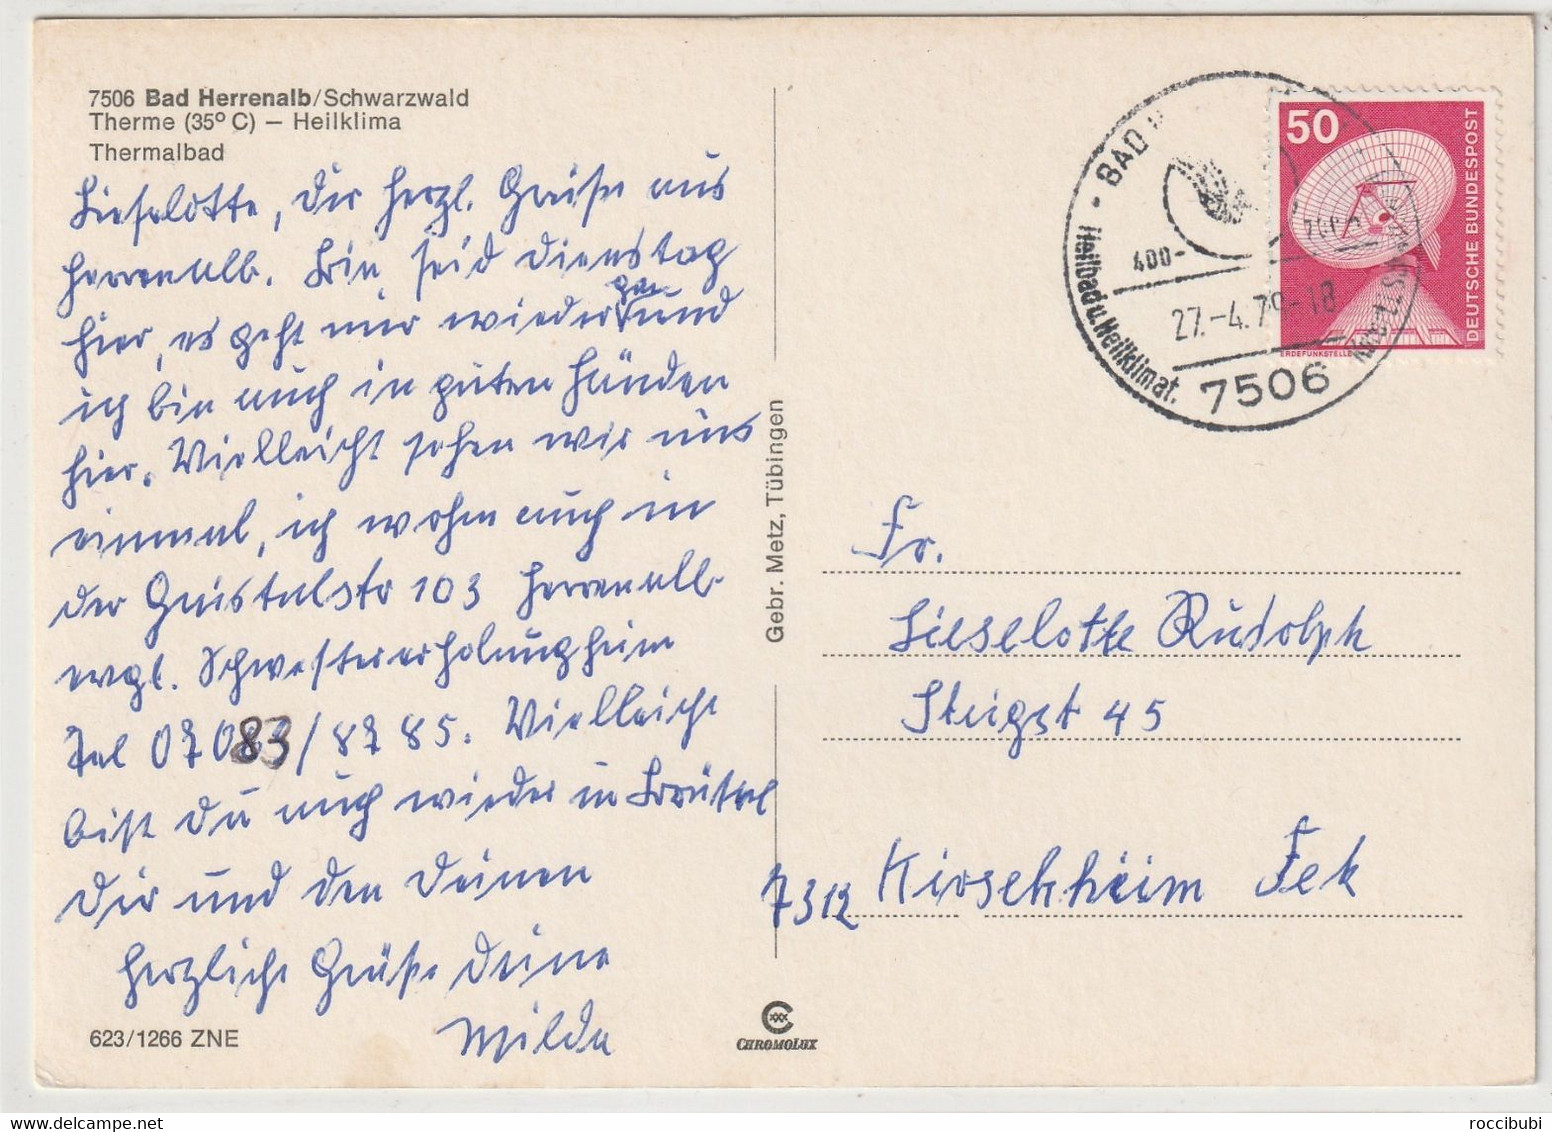 7506 Bad Herrenalb/Schwarzwald
Therme (35º C) — Heilklima
Thermalbad
Lieselotte, Dir herzl. Grüße aus
Herrenalb. Bin seid Dienstag
hier, es geht mir wieder gar und
ich bin auch in guten Händen
hier. Vielleicht sehen wir uns
einmal, ich wohne auch in
der Gaistalstr 103 Herrenalb
evgl. Schwestererholungsheim
Tel 07083/8785. Vielleicht
bist Du auch wieder in
Dir und den Deinen
herzliche Grüße Deine
Milda
623/1266 ZNE
Gebr. Metz, Tübingen
CHROMOLUX
BAD
400-
27.-4.79-18
Heilbad u. Heilklimat.
7506
50
DEUTSCHE BUNDESPOST
ERDEFUNKSTELLE
Fr.
Lieselotte Rudolph
Steigstr 45
7312 Kirchheim Teck
roccibubi